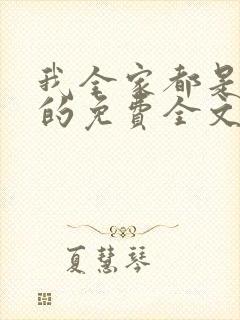 我全家都是
的免费全文
夏慧琴